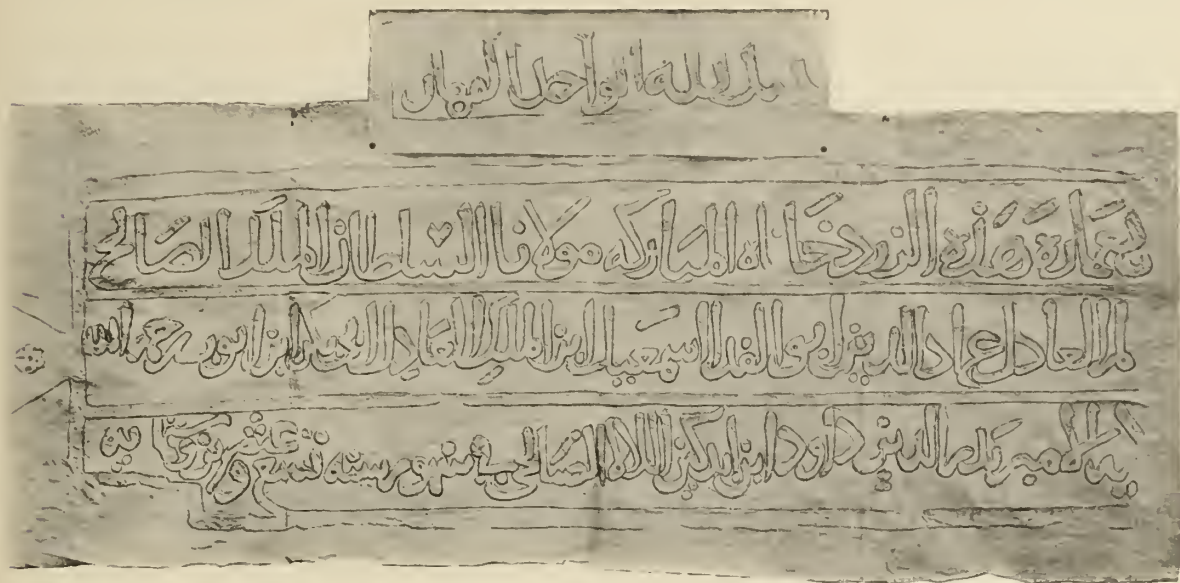 الملك لله الواحد القهار
بعمارة هذه الزردخاناه المباركه مولانا السلطان الملك الصالح
العادل عماد الدين ابو الفدا اسمعيل ابن الملك العادل ابي بكر ابن ايوب رحمه الله
الدين داود ابن ايدكين الصالحي في شهور سنه تسع وعشرين